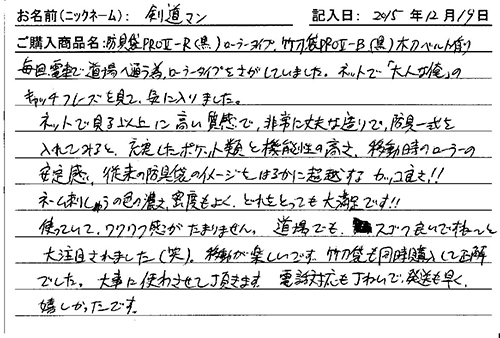 お名前(ニックネーム): 剣道マン 記入日: 2015年12月19日
ご購入商品名:防具袋PROⅡ-R(黒)ローラータイプ, 竹刀袋PROⅡ-B(黒)木刀ベルト付
毎回電車で道場へ通う為,ローラータイプをさがしていました。ネットで「大人な俺」の
キャッチフレーズを見て、気に入りました。
ネットで見る以上に高い質感で,非常に丈夫な造りで,防具一式を
入れてみると、充実したポケット類と機能性の高さ、移動時のローラーの
安定感と、従来の防具袋のイメージをはるかに超越するカッコ良さ!!
ネーム刺しゅうの色の濃さ、密度もよく、どれをとっても大満足です!!
使っていて、ワクワク感がたまりません。道場でも、スゴク良いですねっと
大注目されました(笑)。移動が楽しいです。竹刀袋も同時購入して正解
でした。大事に使わさせて頂きます 電話対応も丁ねいで,発送も早く、
嬉しかったです。